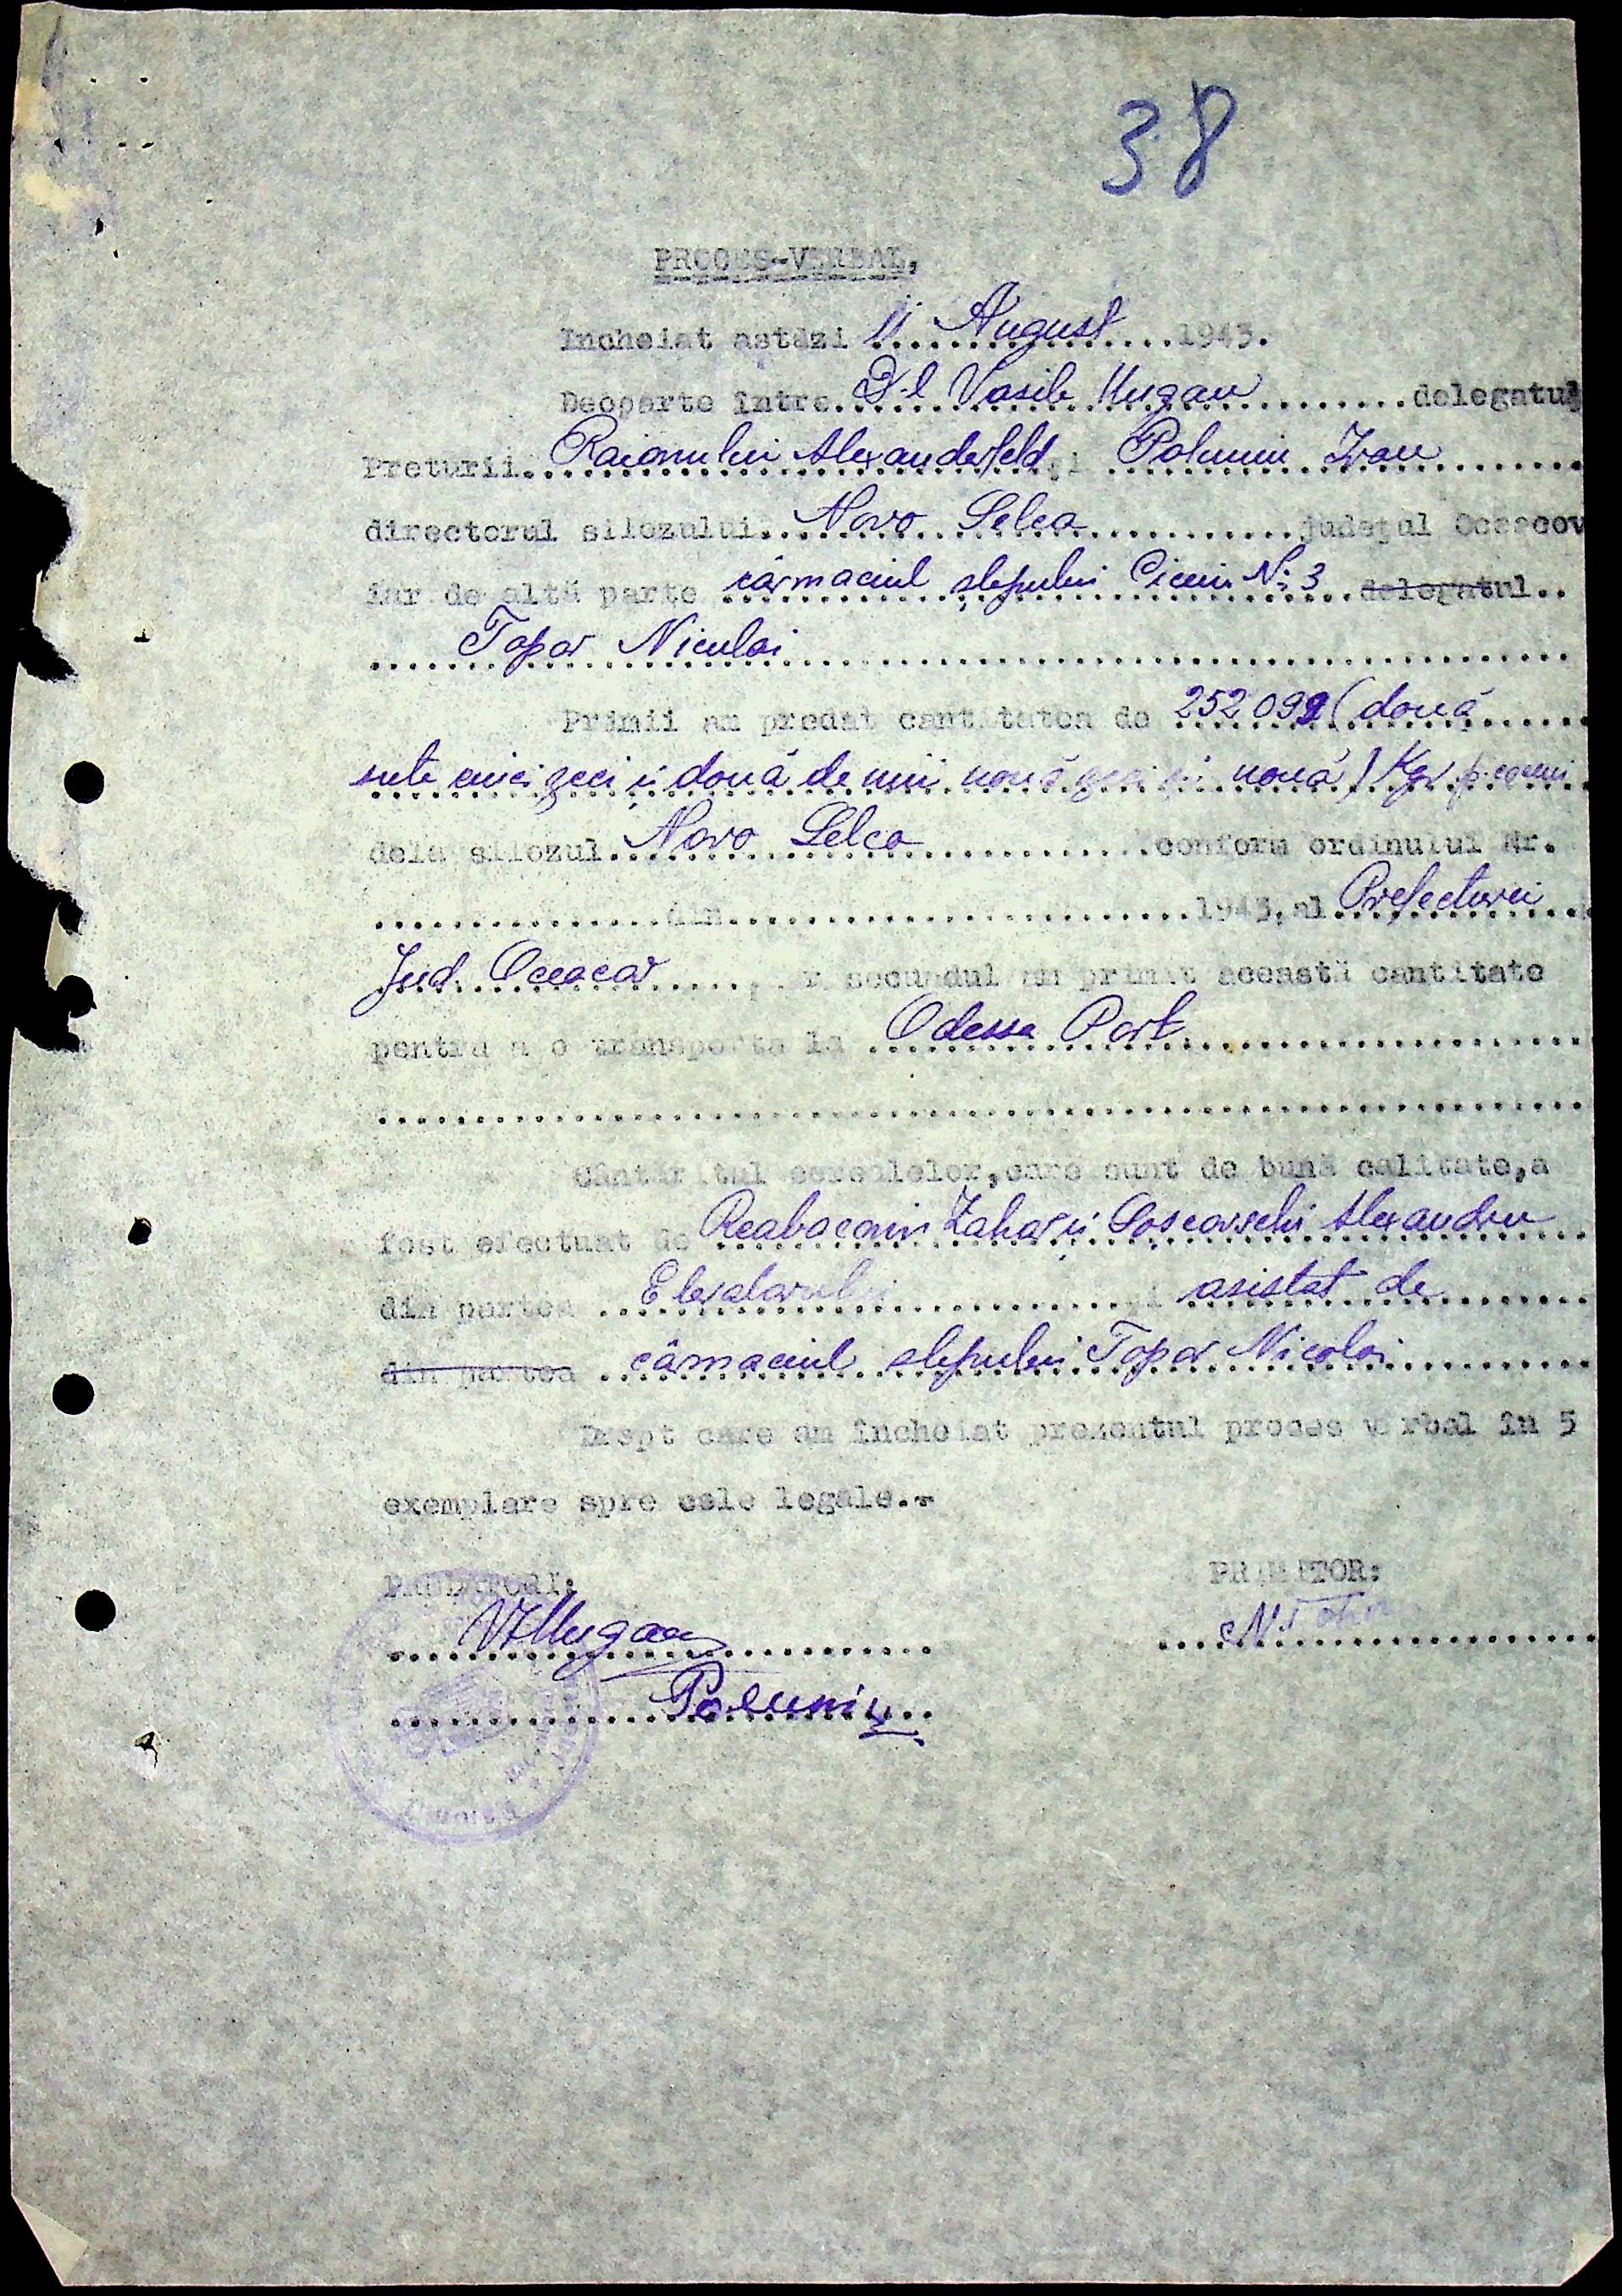 38
PROCES-VERBAL,
Incheiat astăzi 11 August 1943.
Deoparte între D-l Vasile Mugan delegatul
Preturii Raionului Alexanderfeld și Polunin Ivan
directorul silozului Novo Selca județul Oceacov
iar de altă parte cârmaciul șlepului Nr. 3 delegatul
Topor Niculai
Primii au predat cantitatea de 252099 (două
sute cinci zeci și două de mii nouă zeci și nouă) Kgr
dela silozul Novo Selca conform ordinului Nr.
din 1943, al Prefecturei
Jud. Oceacov secundul am primit această cantitate
pentru a o transporta la Odessa Port
Cântăritul cerealelor, care sunt de bună calitate, a
fost efectuat de Zaharii Alexandru
din partea Elevatorului și asistat de
din partea cârmaciul șlepului Topor Nicolai
Drept care am încheiat prezentul proces verbal în 5
exemplare spre cele legale.-
PREDĂTORI: PRIMITOR:
VMugan
Polunin